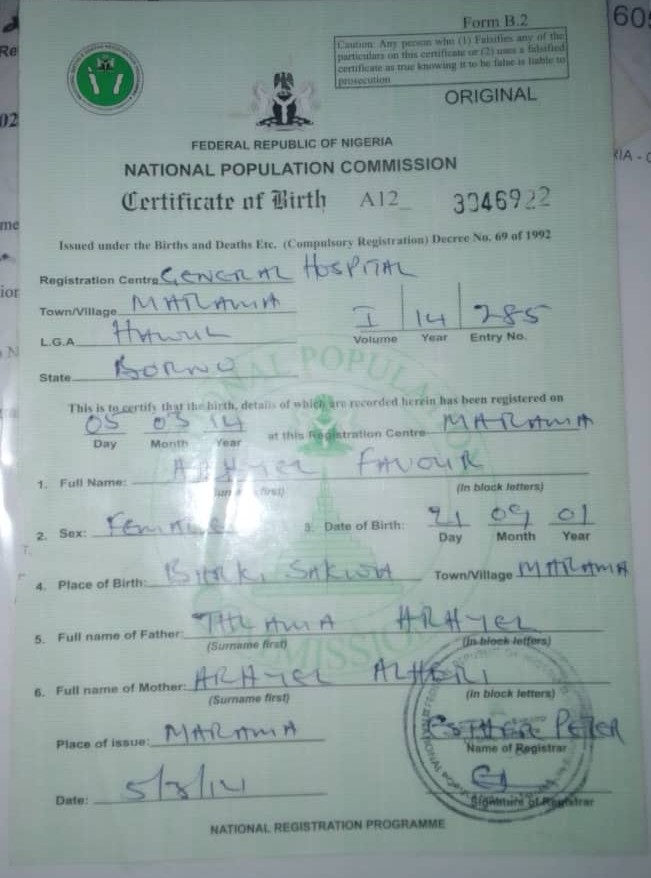 Form B.2
Caution: Any person who (1) Falsifies any of the
particulars on this certificate or (2) uses a falsified
certificate as true knowing it to be false is liable to
prosecution
ORIGINAL
FEDERAL REPUBLIC OF NIGERIA
NATIONAL POPULATION COMMISSION
Certificate of Birth A12_ 3346922
Issued under the Births and Deaths Etc. (Compulsory Registration) Decree No. 69 of 1992
Registration Centre GENERAL HOSPITAL
Town/Village MARAMA
L.G.A HAWUL
I 14 285
Volume Year Entry No.
State BORNO
This is to certify that the birth, details of which are recorded herein has been registered on
05 03 14 at this Registration Centre MARAMA
Day Month Year
1. Full Name: ARHYEL FAVOUR
(Surname first) (In block letters)
2. Sex: FEMALE 3. Date of Birth: 21 09 01
Day Month Year
4. Place of Birth: SAKWA Town/Village MARAMA
5. Full name of Father: THLAMA ARHYEL
(Surname first) (In block letters)
6. Full name of Mother: ARHYEL ALHERI
(Surname first) (In block letters)
Place of issue: MARAMA
ESTHER PETER
Name of Registrar
Date: 5/3/14
Signature of Registrar
NATIONAL REGISTRATION PROGRAMME